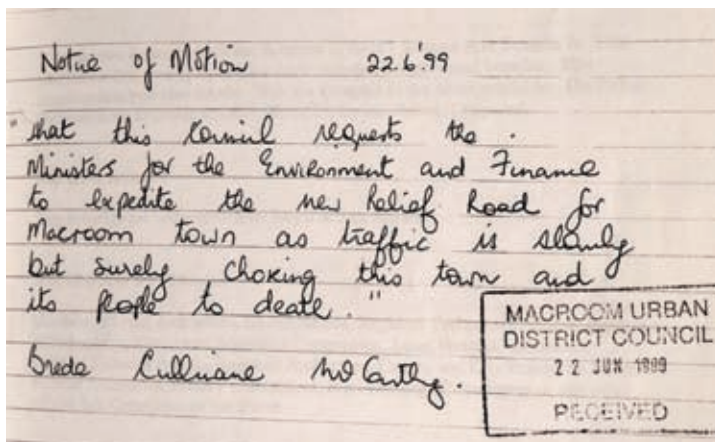 Notice of Motion 22.6.'99
"that this Council requests the
Ministers for the Environment and Finance
to expedite the new Relief Road for
Macroom town as traffic is slowly
but surely choking this town and
its people to death."
Breda Cullinane McCarthy.
MACROOM URBAN
DISTRICT COUNCIL
22 JUN 1999
RECEIVED